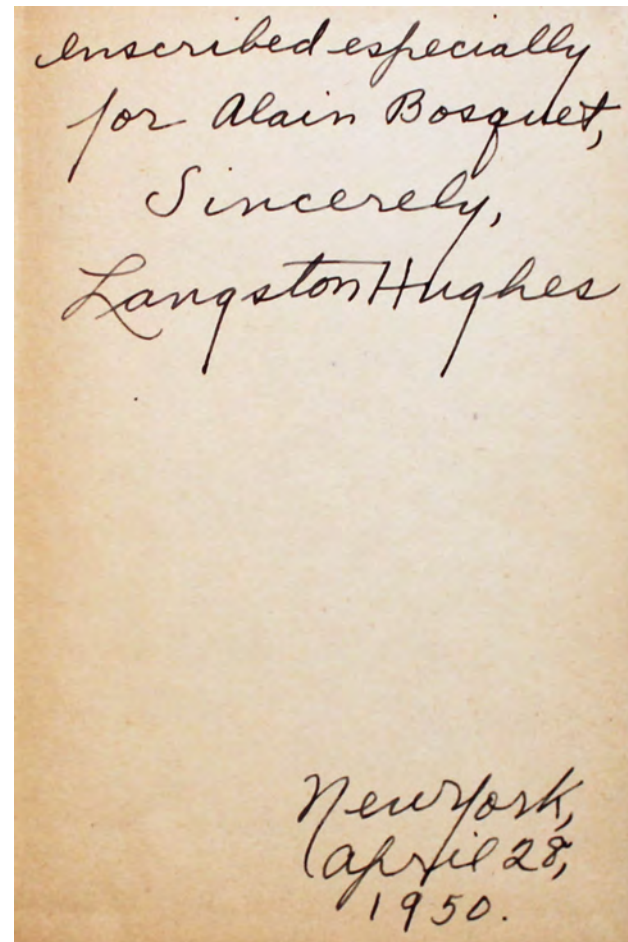 Enscribed especially
for Alain Bosquet,
Sincerely,
Langston Hughes
New York,
April 28,
1950.